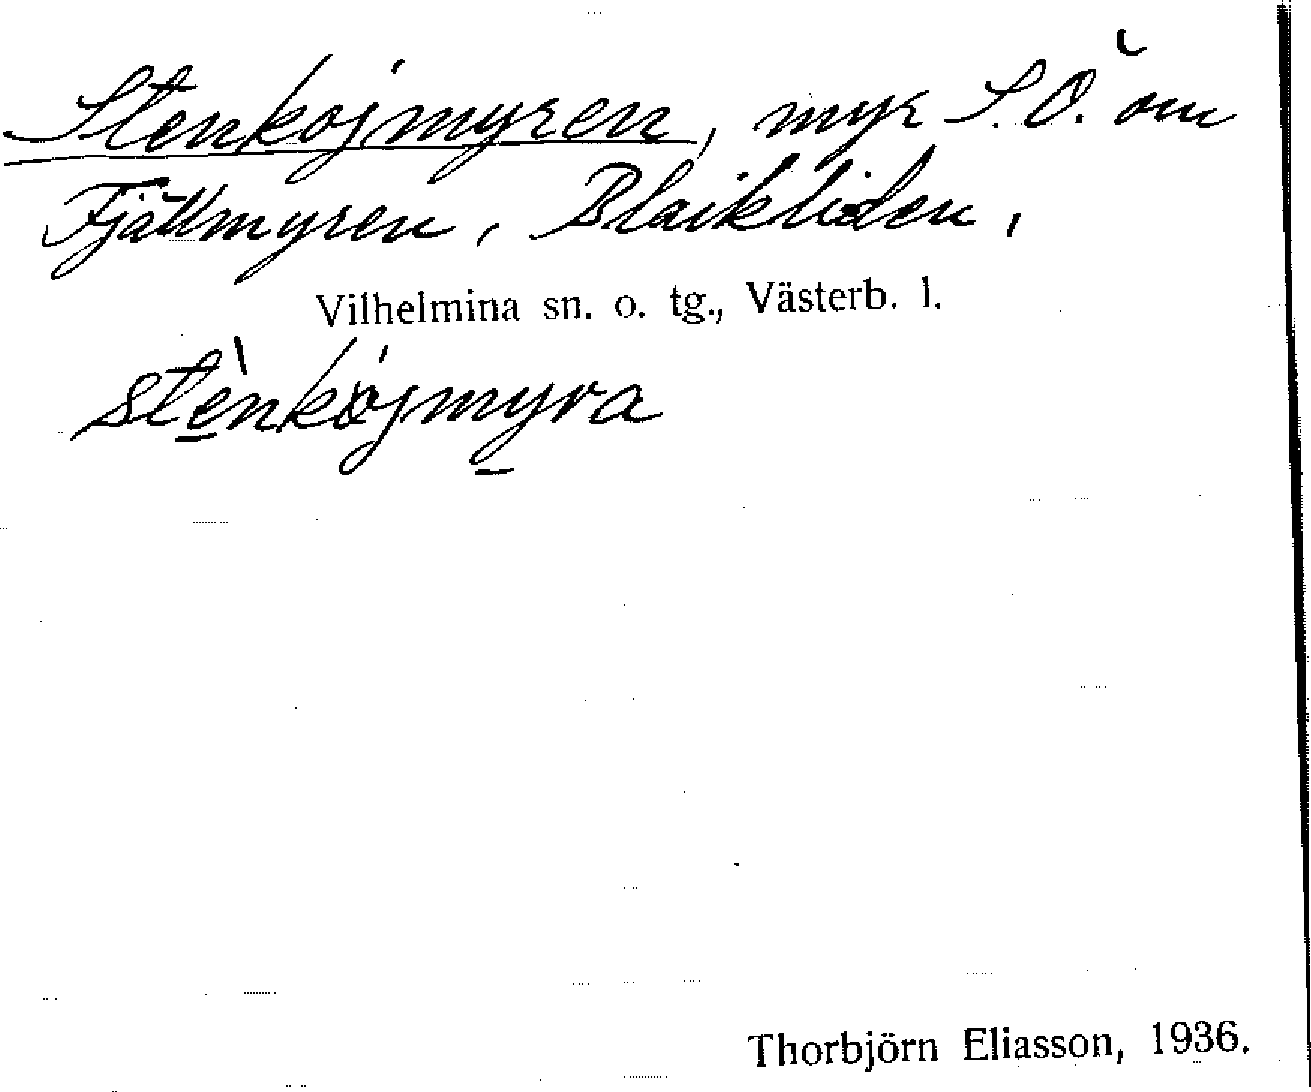 Stenkojmyren, myr S.O. om
Fjällmyren, Blaikliden,
Vilhelmina sn. o. tg., Västerb. l.
stè̱nkåjmy̱ra
Thorbjörn Eliasson, 1936.